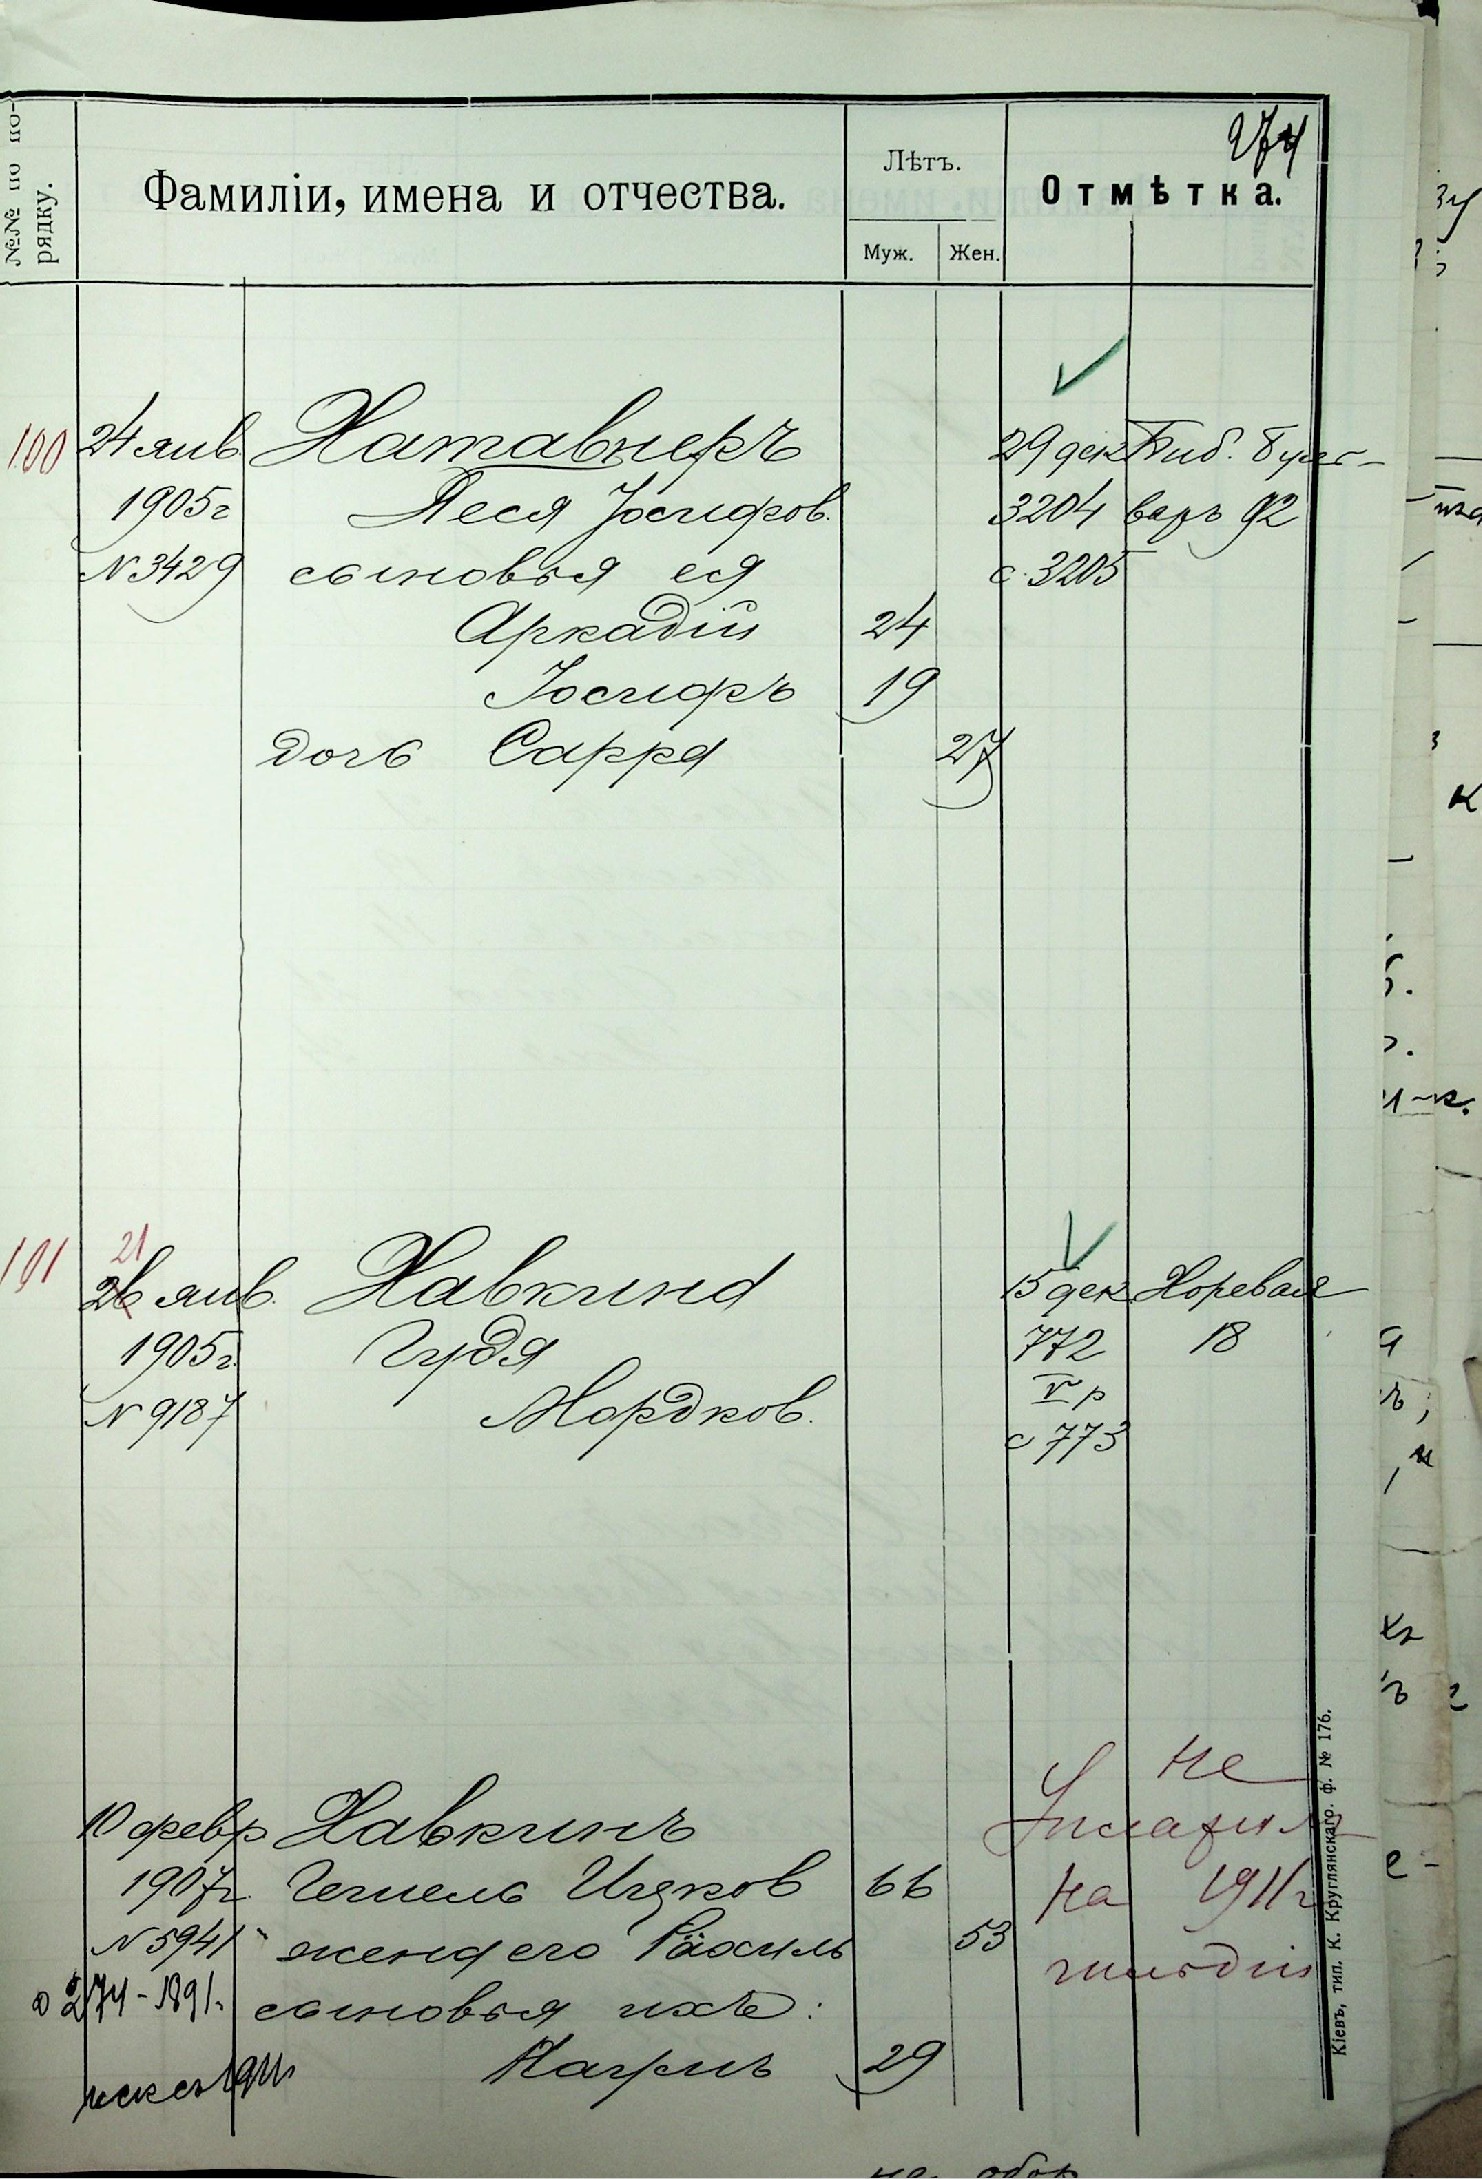 274
№№ по по-
рядку.
Фамиліи, имена и отчества.
Лѣтъ.
Муж.
Жен.
Отмѣтка.
100
24 янв.
1905г
N 3429
Хатавнеръ
Песя Іосифов.
сыновья ея
Аркадій 24
Іосифъ 19
дочь Сарра 27
29 дек
3204
с. 3205
Биб. Буль-
варъ 92
101
21
26 янв.
1905г.
N 9187
Хавкина
Гудя
Мордков.
15 дек
772
V р
с 773
Хоревая
18
10 февр
1907г.
N 5941
274-1891г.
Хавкинъ
Гешель Ицков 66
жена его Рахиль 53
сыновья ихъ:
29
не
на 1911г
гильдіи
на обор
Кіевъ, тип. К. Круглянскаго. ф. № 176.